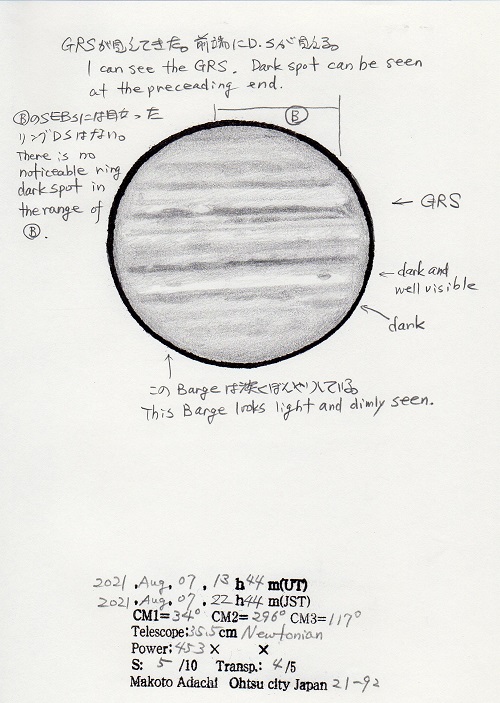 GRSが見えてきた。前端にD.Sが見える。
I can see the GRS. Dark spot can be seen
at the preceading end.
Ⓑ
ⒷのSEBsには目立った
リングDSはない。
There is no
noticeable ring
dark spot in
the range of
Ⓑ.
← GRS
← dark and
well visible
dark
このBargeは淡くぼんやりしている。
This Barge looks light and dimly seen.
2021 . Aug. 07 . 13 h 44 m(UT)
2021 . Aug. 07 . 22 h 44 m(JST)
CM1= 34° CM2= 296° CM3= 117°
Telescope: 35.5 cm Newtonian
Power: 453 × ×
S: 5 /10 Transp.: 4 /5
Makoto Adachi Ohtsu city Japan 21-92